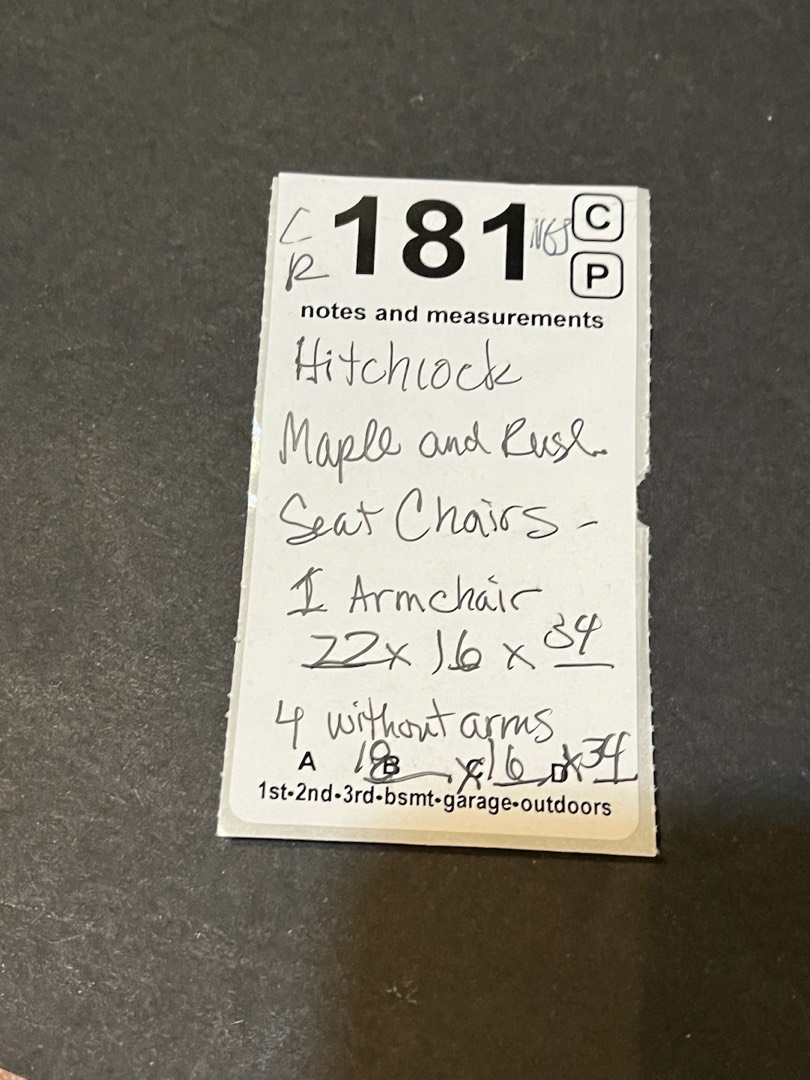 C 181 NFS C
R P
notes and measurements
Hitchcock
Maple and Rush
Seat Chairs -
1 Armchair
22 x 16 x 34
4 without arms
18 x 16 x 34
A B C D
1st-2nd-3rd-bsmt-garage-outdoors